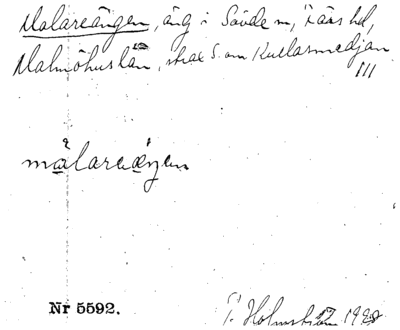 Malareängen, äng i Sövde sn, Färs hd,
Malmöhus län, strax S. om Kullasmedjan
III
målareäŋen
Nr 5592.
T. Holmström 1928